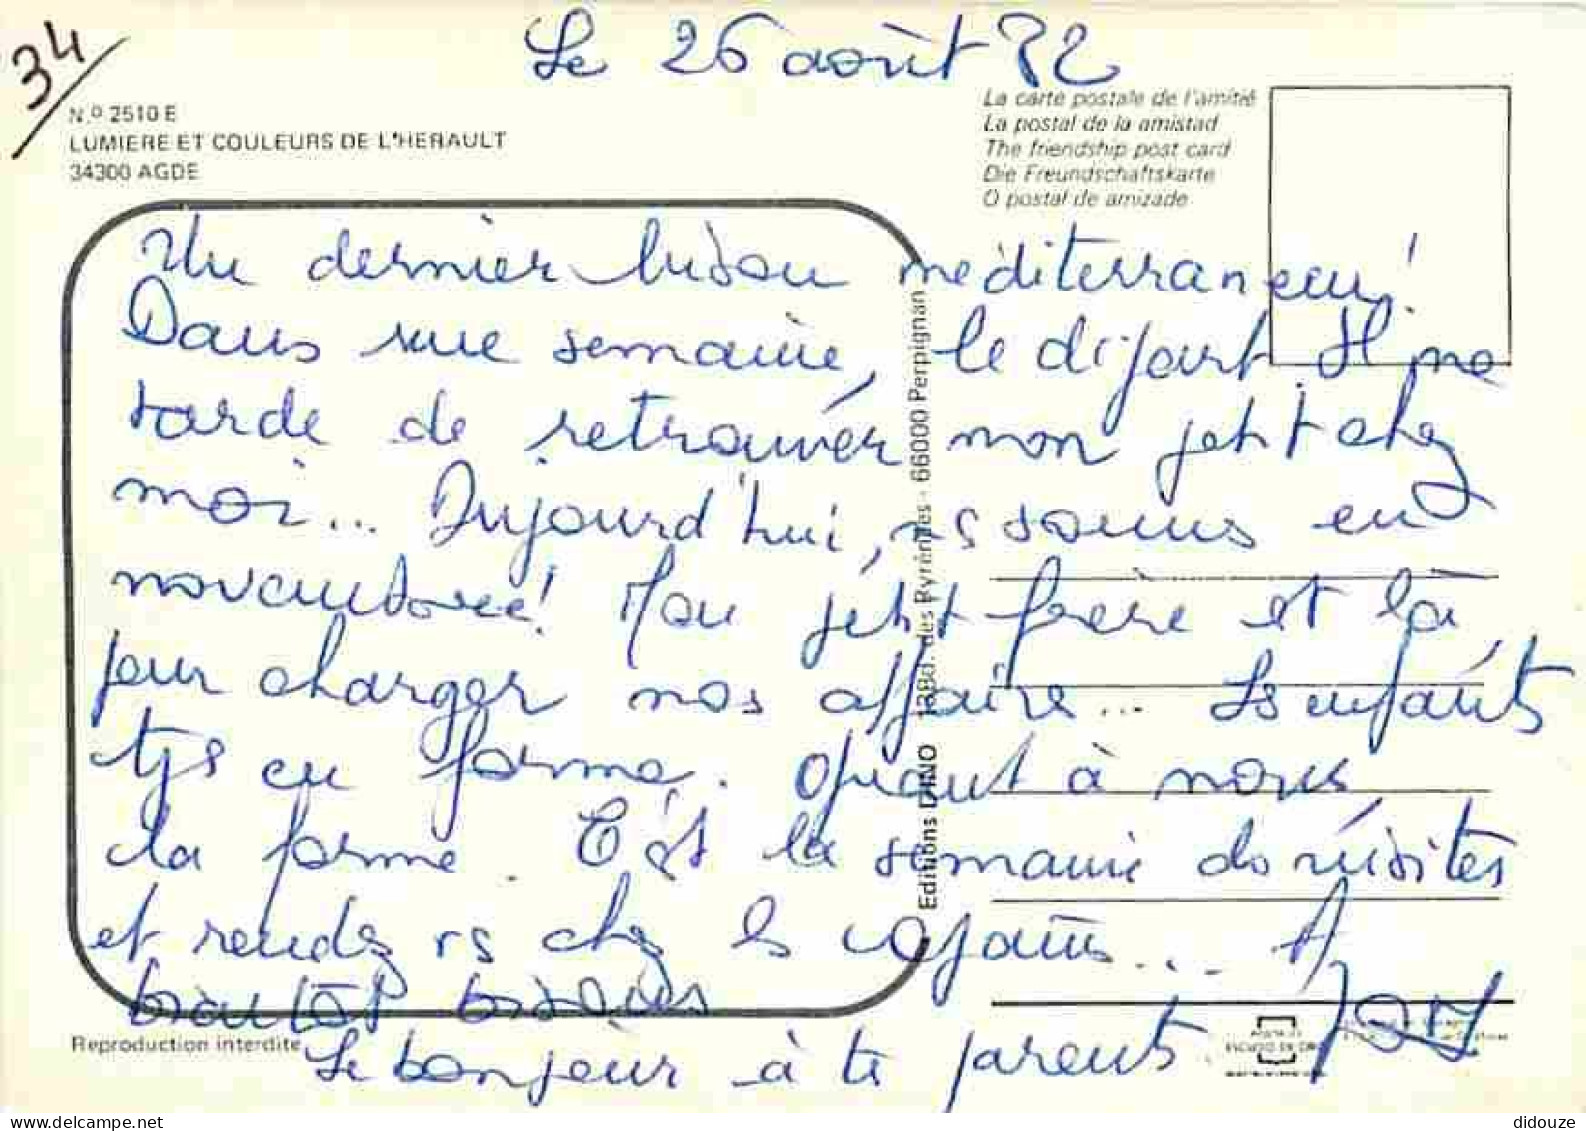 34
Le 26 août 82
N.º 2510 E
LUMIERE ET COULEURS DE L'HERAULT
34300 AGDE
La carte postale de l'amitié
La postal de la amistad
The friendship post card
Die Freundschaftskarte
O postal de amizade
Un dernier bisou méditerranéen!
Dans une semaine, le départ Il me
tarde de retrouver mon petit chez
moi... Aujourd'hui, ns sommes en
! Mon petit frère est là
pour charger nos affaires... Ls enfants
tjs en forme. Quant à nous
la forme. C'est la semaine ds visites
et rendez vs chez ls copains... A
bientôt bisous
Le bonjour à ts parents
Editions DINO 138d. des Pyrénées - 66000 Perpignan
Reproduction interdite
ESCUDO DE ORO
didouze